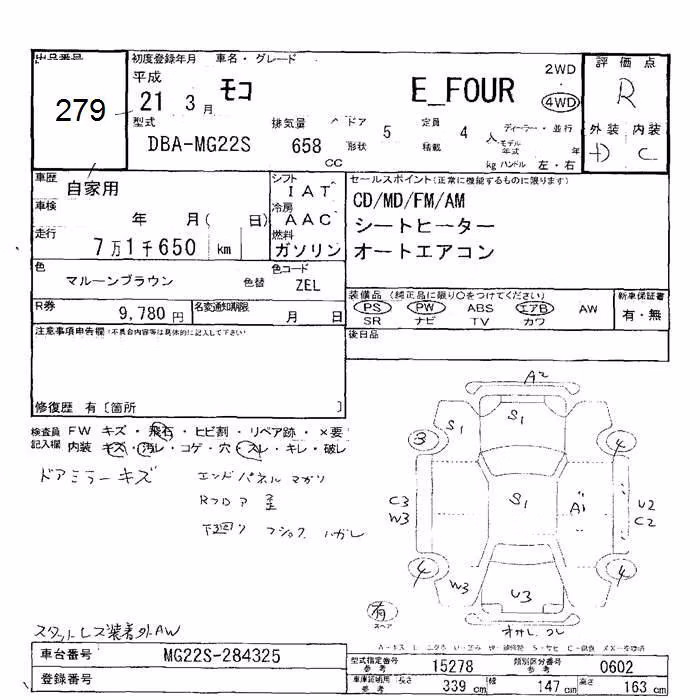 出品番号 初度登録年月 車名・グレード 評価点
279
平成 21 3 月 モコ E_FOUR 2WD 4WD R
型式 DBA-MG22S 排気量 658 CC ドア 形状 5 定員 積載 4 人 kg ディーラー・並行 モデル年式 年 ハンドル 左・右 外装 D 内装 C
車歴 自家用 シフト IAT セールスポイント(正常に機能するものに限ります)
車検 年 月( 日) 冷房 AAC CD/MD/FM/AM
シートヒーター
走行 7万1千650 km 燃料 ガソリン オートエアコン
色 マルーンブラウン 色替 色コード ZEL
R券 9,780 円 名変通知期限 月 日
装備品 (純正品に限り○をつけてください) 新車保証書
PS PW ABS エアB AW 有・無
SR ナビ TV カワ
注意事項申告欄(不具合内容等は具体的に記入して下さい) 後日品
修復歴 有〔箇所 〕
検査員 FW キズ・飛石・ヒビ割・リペア跡・×要
記入欄 内装 キズ・汚レ・コゲ・穴・スレ・キレ・破レ
ドアミラーキズ エンドパネル マガリ
Rフロア 歪
下回り フショク ハガレ
A2
S1 S1
3 4
C3 W3 S1 A1 U2 C2
4 4
W3 U3
有 スペア
スタットレス装着外AW
車台番号 MG22S-284325 型式指定番号 参考 15278 類別区分番号 参考 0602
登録番号 車庫証明用 参考 長さ 339 cm 幅 147 cm 高さ 163 cm